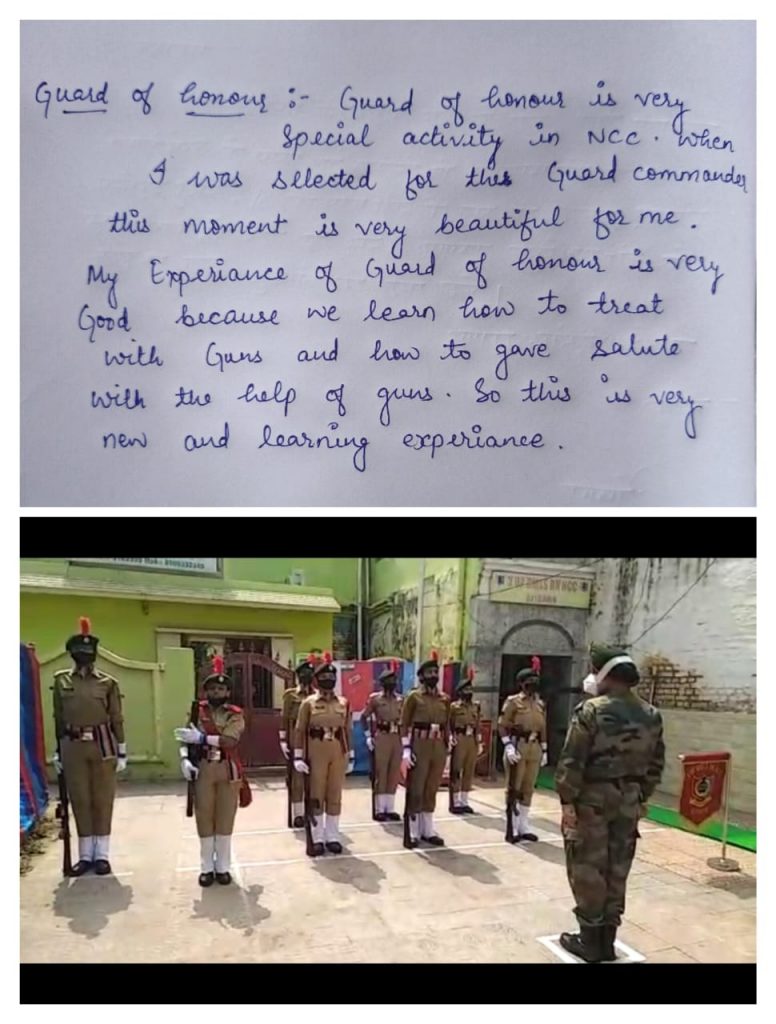 Guard of honour :- Guard of honour is very
Special activity in NCC. When
I was selected for this Guard commander
this moment is very beautiful for me.
My Experiance of Guard of honour is very
Good because we learn how to treat
with Guns and how to gave salute
with the help of guns. So this is very
new and learning experiance.
BN NCC